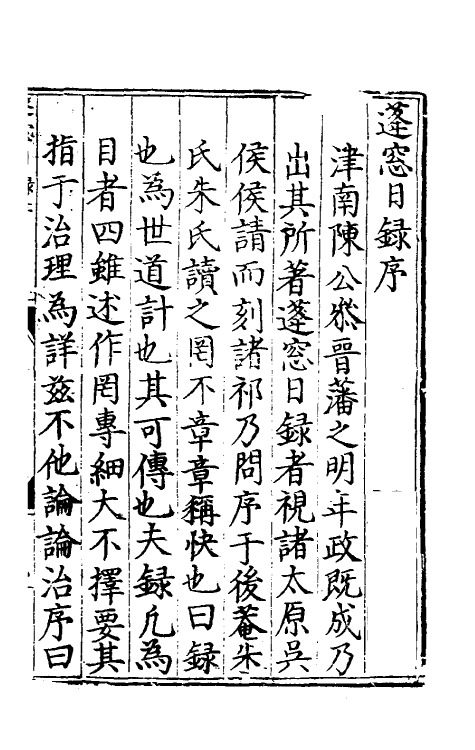 蓬窓日録序
津南陳公叅晉藩之明年政既成乃
出其所著蓬窓日録者視諸太原吳
侯侯請而刻諸祁乃問序于後菴朱
氏朱氏讀之罔不章章稱快也曰録
也為世道計也其可傳也夫録凢為
目者四雖述作罔專細大不擇要其
指于治理為詳兹不他論論治序曰